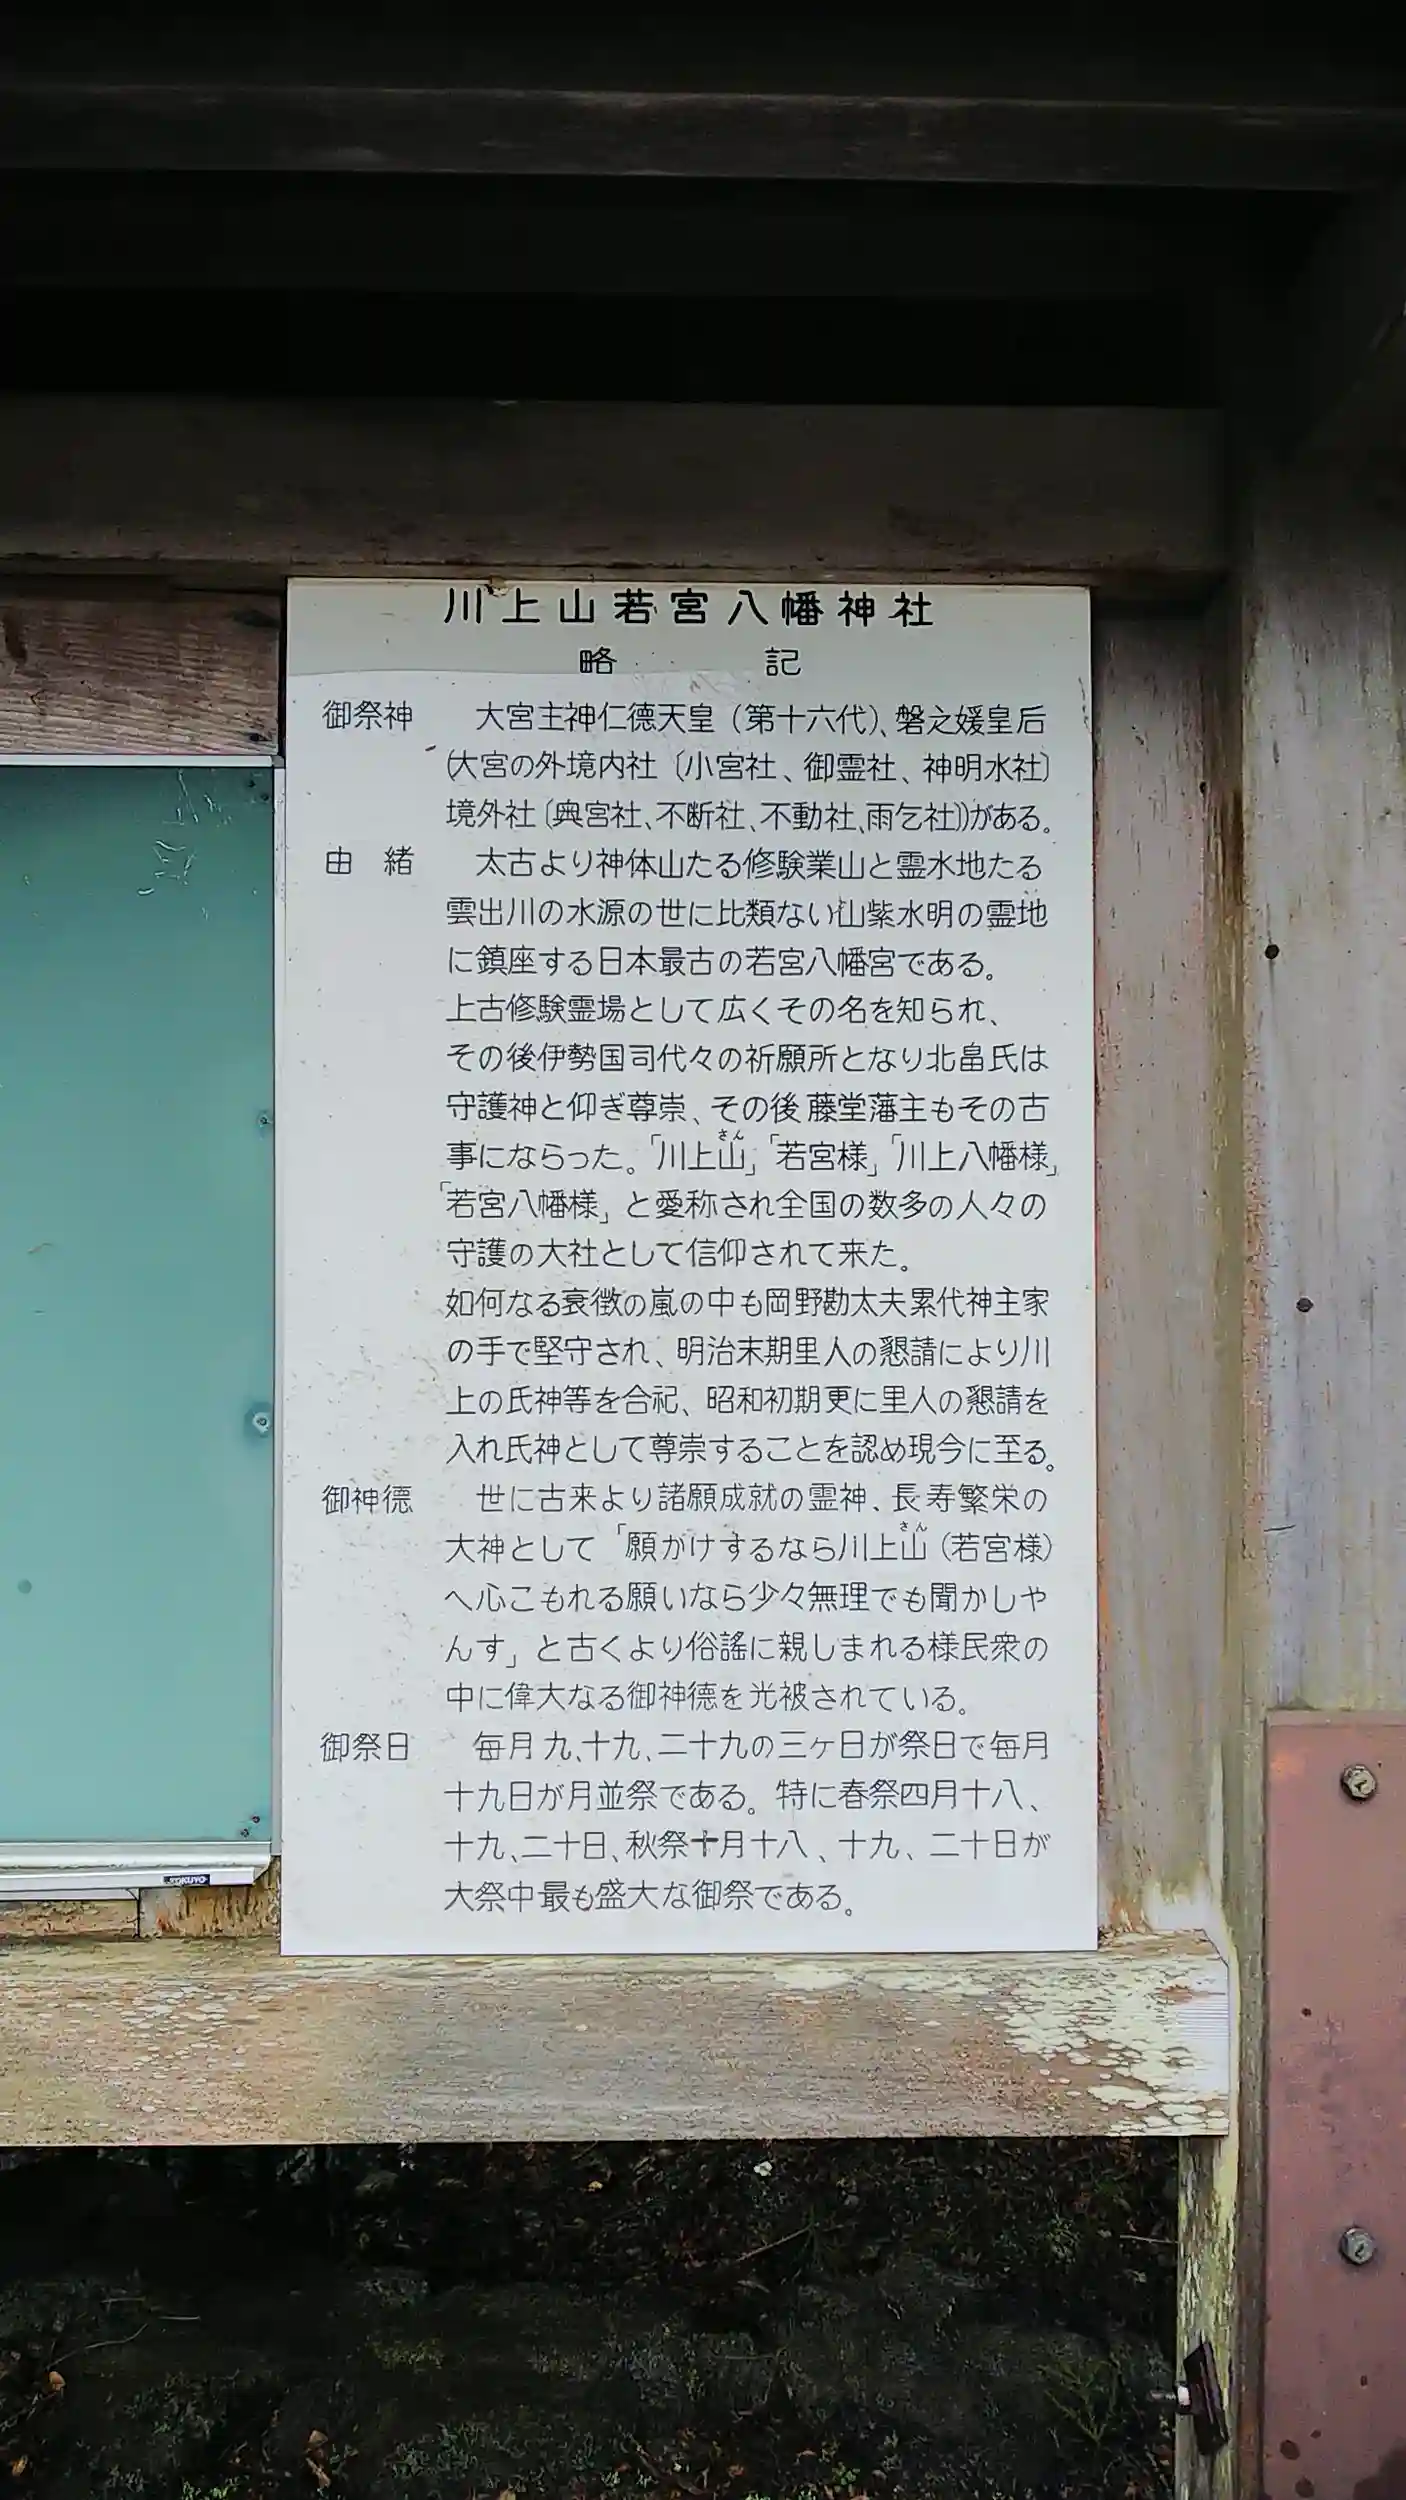 川上山若宮八幡神社
略 記
御祭神 大宮主神仁徳天皇（第十六代）、磐之媛皇后
(大宮の外境内社〔小宮社、御霊社、神明水社〕
境外社〔興宮社、不断社、不動社、雨乞社〕)がある。
由 緒 太古より神体山たる修験業山と霊水地たる
雲出川の水源の世に比類ない山紫水明の霊地
に鎮座する日本最古の若宮八幡宮である。
上古修験霊場として広くその名を知られ、
その後伊勢国司代々の祈願所となり北畠氏は
守護神と仰ぎ尊崇、その後藤堂藩主もその古
さん
事にならった。「川上山」「若宮様」「川上八幡様」
「若宮八幡様」と愛称され全国の数多の人々の
守護の大社として信仰されて来た。
如何なる衰徴の嵐の中も岡野勘太夫累代神主家
の手で堅守され、明治末期里人の懇請により川
上の氏神等を合祀、昭和初期更に里人の懇請を
入れ氏神として尊崇することを認め現今に至る。
御神徳 世に古来より諸願成就の霊神、長寿繁栄の
さん
大神として「願がけするなら川上山（若宮様）
へ心こもれる願いなら少々無理でも聞かしゃ
んす」と古くより俗謡に親しまれる様民衆の
中に偉大なる御神徳を光被されている。
御祭日 毎月九、十九、二十九の三ヶ日が祭日で毎月
十九日が月並祭である。特に春祭四月十八、
十九、二十日、秋祭十月十八、十九、二十日が
大祭中最も盛大な御祭である。
KOKUYO